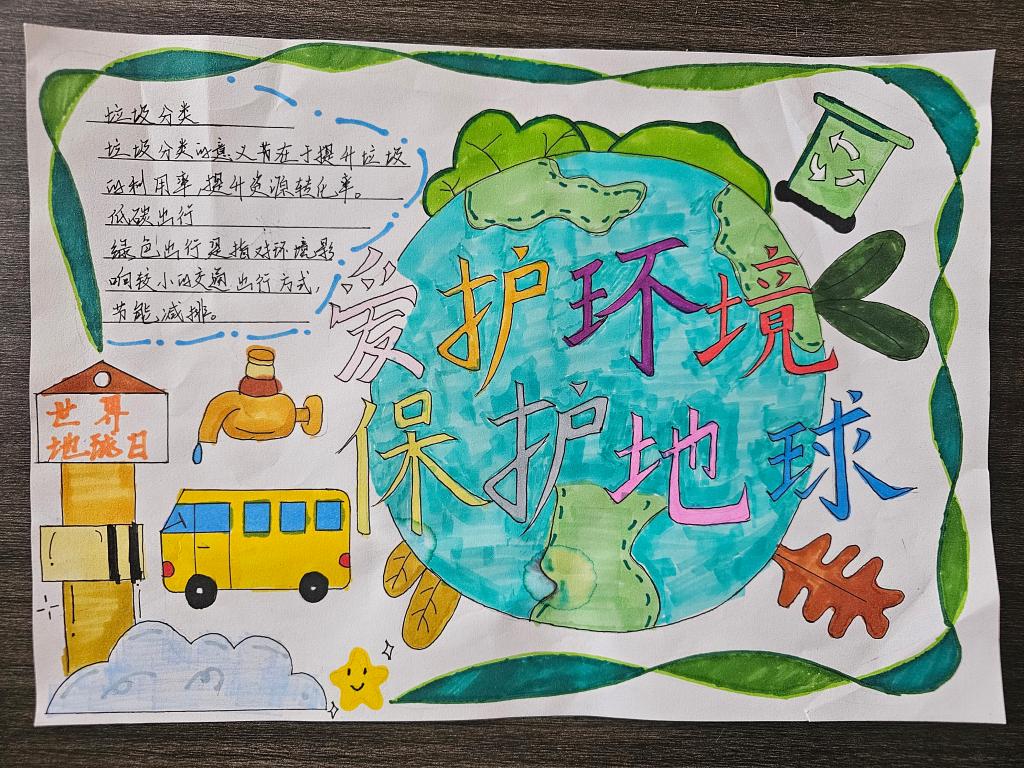 垃圾分类
垃圾分类的意义节在于提升垃圾
的利用率提升资源转化率。
低碳出行
绿色出行是指对环境影
响较小的交通出行方式，
节能减排。
爱护环境
保护地球
世界
地球日